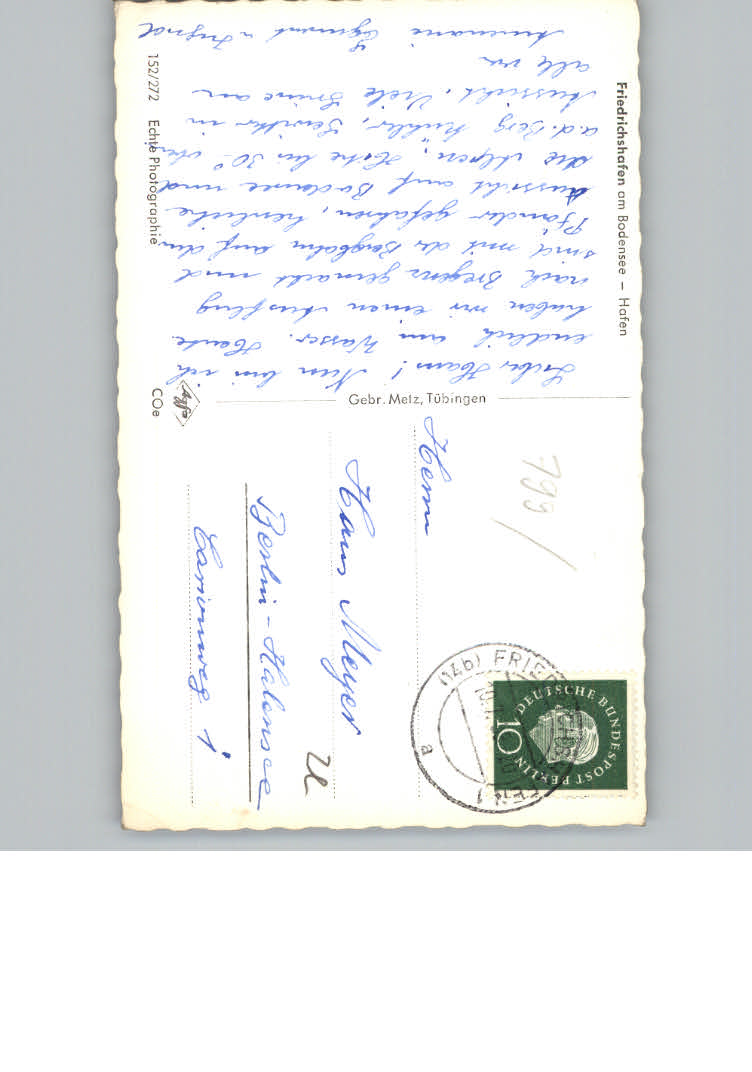 Friedrichshafen am Bodensee – Hafen
Lieber Hans! Nun bin ich
endlich am Wasser. Heute
haben wir einen Ausflug
nach Bregenz gemacht und
sind mit der Bergbahn auf den
Pfänder gefahren, herrliche
Aussicht auf Bodensee und
die Alpen, Hitze bis 30° oben
a.d. Berg kühler, Gewitter in
Aussicht. Viele Grüsse an
alle von
Annemarie
152/272 Echte Photographie
Gebr. Metz, Tübingen
Agfa
COe
799
Herrn
Hans Meyer
Berlin-Halensee
1
(14b) FRIEDRICHSHAFEN 1
a
DEUTSCHE BUNDESPOST BERLIN
10